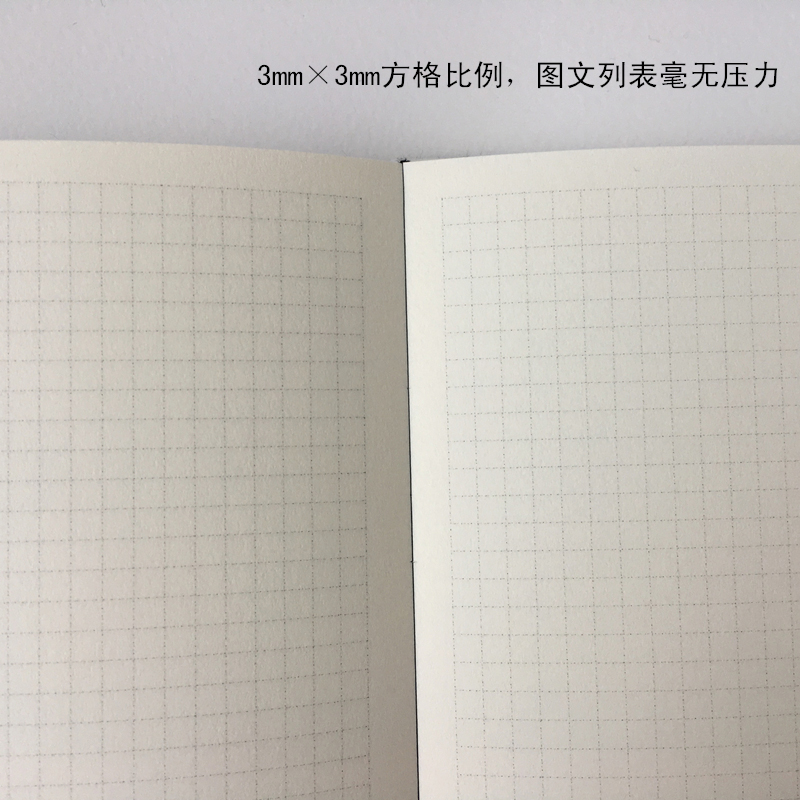 3mm×3mm方格比例，图文列表毫无压力